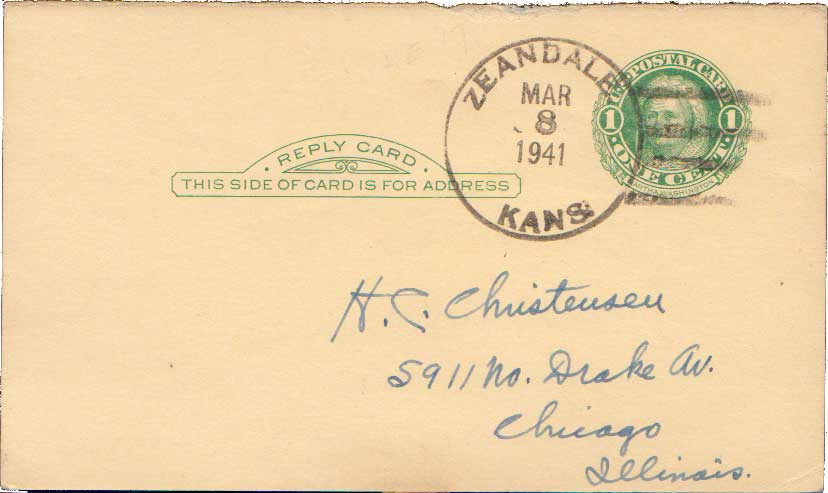 ZEANDALE
MAR
8
1941
KANS
U.S. POSTAL CARD
1 1
ONE CENT
MARTHA WASHINGTON
· REPLY CARD ·
THIS SIDE OF CARD IS FOR ADDRESS
H. C. Christensen
5911 No. Drake Av.
Chicago
Illinois.